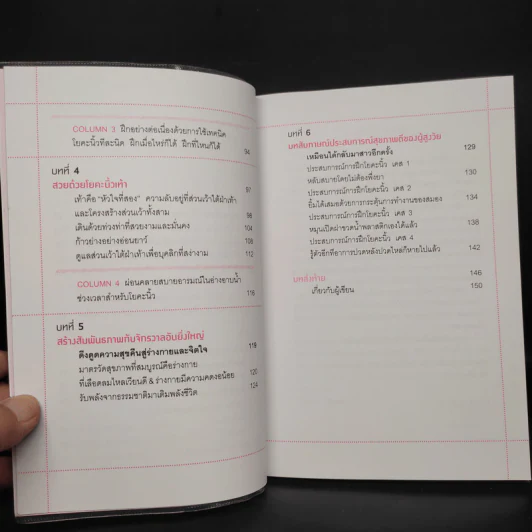 COLUMN 3 ฝึกอย่างต่อเนื่องด้วยการใช้เทคนิค
โยคะนิ้วทีละนิด ฝึกเมื่อไหร่ก็ได้ ฝึกที่ไหนก็ได้ 94
บทที่ 4
สวยด้วยโยคะนิ้วเท้า 97
เท้าคือ "หัวใจที่สอง" ความลับอยู่ที่ส่วนเว้าใต้ฝ่าเท้า
และโครงสร้างส่วนเว้าทั้งสาม 98
เดินด้วยท่วงท่าที่สวยงามและมั่นคง 104
ก้าวย่างอย่างอ่อนยาว์ 108
ดูแลส่วนเว้าใต้ฝ่าเท้าเพื่อบุคลิกที่สง่างาม 112
COLUMN 4 ผ่อนคลายสบายอารมณ์ในอ่างอาบน้ำ
ช่วงเวลาสำหรับโยคะนิ้ว 116
บทที่ 5
สร้างสัมพันธภาพกับจักรวาลอันยิ่งใหญ่
ดึงดูดความสุขคืนสู่ร่างกายและจิตใจ 119
มาตรวัดสุขภาพที่สมบูรณ์คือร่างกาย
ที่เลือดลมไหลเวียนดี & ร่างกายมีความคดงอน้อย 120
รับพลังจากธรรมชาติมาเติมพลังชีวิต 124
บทที่ 6
บทสัมภาษณ์ประสบการณ์สุขภาพดีของผู้สูงวัย
เหมือนได้กลับมาสาวอีกครั้ง 129
ประสบการณ์การฝึกโยคะนิ้ว เคส 1
หลับสบายโดยไม่ต้องพึ่งยา 130
ประสบการณ์การฝึกโยคะนิ้ว เคส 2
ยิ้มได้เสมอด้วยการกระตุ้นการทำงานของสมอง 134
ประสบการณ์การฝึกโยคะนิ้ว เคส 3
หมุนเปิดฝาขวดน้ำพลาสติกเองได้แล้ว 138
ประสบการณ์การฝึกโยคะนิ้ว เคส 4
รู้ตัวอีกทีอาการปวดหลังปวดไหล่ก็หายไปแล้ว 142
บทส่งท้าย 146
เกี่ยวกับผู้เขียน 150